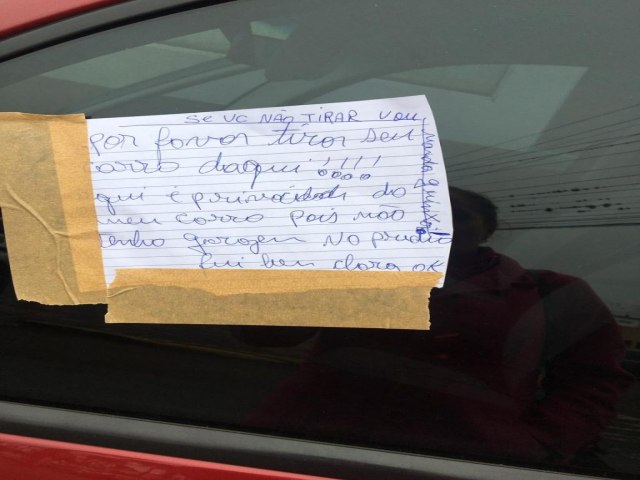 SE VC NÃO TIRAR VOU
Manda guinxar
por favor tirar seu
carro daqui!!!!
aqui é privacidade do
meu carro pois não
tenho garagem No predio
fui bem clara ok